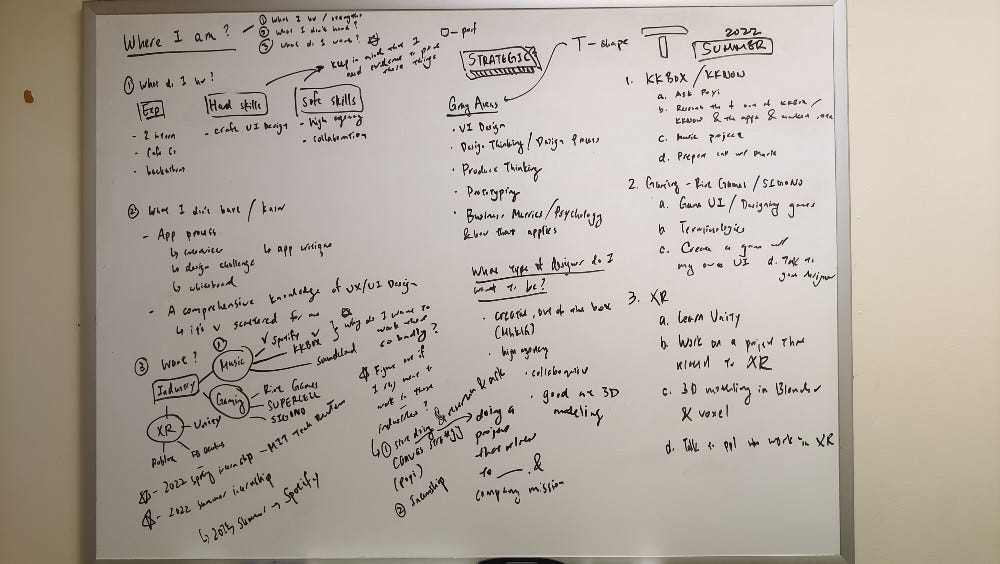 Where I am?
① What I hv / strengths
② What I don't have?
③ What do I want?
□ - port
keep in mind that I
need evidence to prove
these things
① What do I hv?
Exp
- 2 intern
- hackathons
Hard skills
- craft UI Design
Soft skills
- high agency
- collaboration
② What I don't have / know
- App process
↳ interview
↳ app critique
↳ design challenge
↳ whiteboard
- A comprehensive knowledge of UX/UI Design
↳ it's v scattered for me
③ Want?
Industry
① Music
✓ Spotify
KKBOX ✓
soundcloud
why do I want to
work there
so badly?
Gaming
Riot Games
SUPERCELL
SIGONO
XR
Unity
Roblox
FB Oculus
Figure out if
I rly want to
work in these
industries?
↳ ① start doing
& research & ask
CANVAS STRATEGY
(popi)
doing a
project
that relates
to ___ . &
company mission
② Internship
- 2022 spring internship -
- 2022 summer internship
↳ 2023 Summer → Spotify
STRATEGIC
T - shape
Gray Areas
• UI Design
• Design Thinking / Design Process
• Product Thinking
• Prototyping
• Business Metrics / Psychology
& how that applies
What type of designer do I
want to be?
• creative, out of the box
• high agency
• collaborative
• good at 3D
modeling
T
2022
SUMMER
1. KKBOX / KKNOW
a. Ask Popi
b. Research the
KKNOW & the apps & market
c. Music project
d. Prepare
2. Gaming - Riot Games / SIGONO
a. Game UI / Designing games
b. Terminologies
c. Create a game w/
my own UI
d. Talk to
game designer
3. XR
a. Learn Unity
b. Work on a project that
related to XR
c. 3D modeling in Blender
& voxel
d. Talk to ppl who work in XR